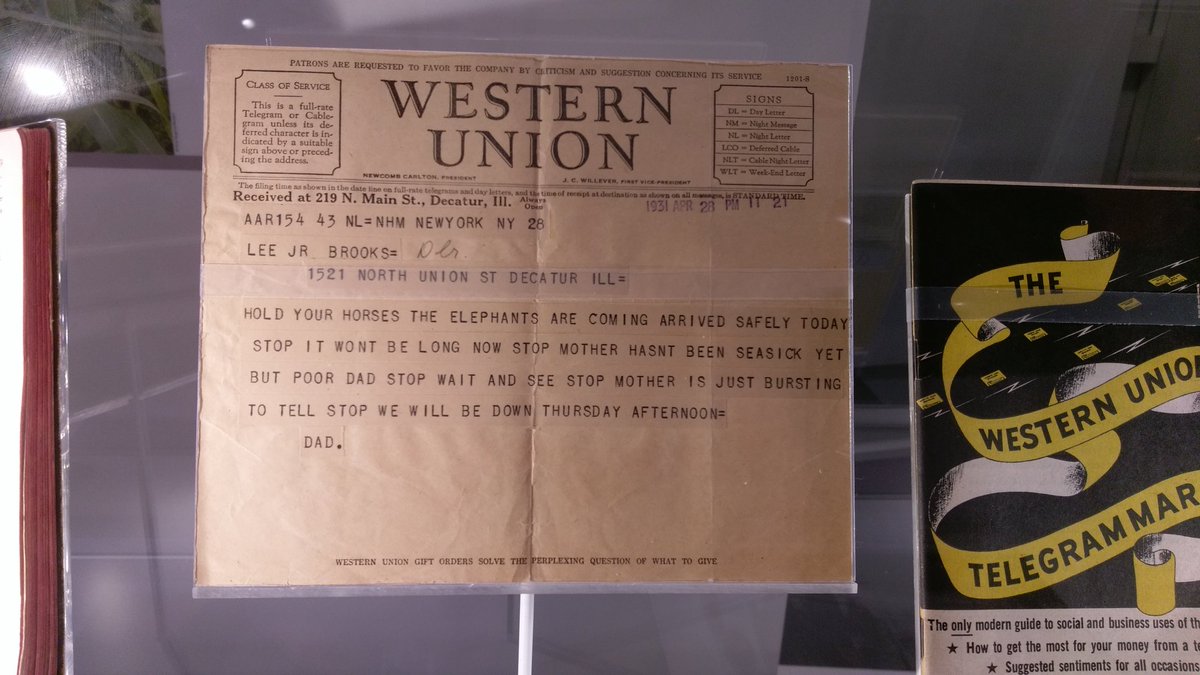 PATRONS ARE REQUESTED TO FAVOR THE COMPANY BY CRITICISM AND SUGGESTION CONCERNING ITS SERVICE
1201-S
CLASS OF SERVICE
This is a full-rate
Telegram or Cable-
gram unless its de-
ferred character is in-
dicated by a suitable
sign above or preced-
ing the address.
WESTERN
UNION
SIGNS
DL = Day Letter
NM = Night Message
NL = Night Letter
LCO = Deferred Cable
NLT = Cable Night Letter
WLT = Week-End Letter
NEWCOMB CARLTON, PRESIDENT
J. C. WILLEVER, FIRST VICE-PRESIDENT
The filing time as shown in the date line on full-rate telegrams and day letters, and the time of receipt at destination as shown on all messages, is STANDARD TIME.
Received at 219 N. Main St., Decatur, Ill. Always Open
1931 APR 28 PM 11 21
AAR154 43 NL=NHM NEWYORK NY 28
LEE JR BROOKS=
1521 NORTH UNION ST DECATUR ILL=
HOLD YOUR HORSES THE ELEPHANTS ARE COMING ARRIVED SAFELY TODAY
STOP IT WONT BE LONG NOW STOP MOTHER HASNT BEEN SEASICK YET
BUT POOR DAD STOP WAIT AND SEE STOP MOTHER IS JUST BURSTING
TO TELL STOP WE WILL BE DOWN THURSDAY AFTERNOON=
DAD.
WESTERN UNION GIFT ORDERS SOLVE THE PERPLEXING QUESTION OF WHAT TO GIVE
THE
WESTERN UNION
TELEGRAMMAR
The only modern guide to social and business uses of th
★ How to get the most for your money from a te
★ Suggested sentiments for all occasions